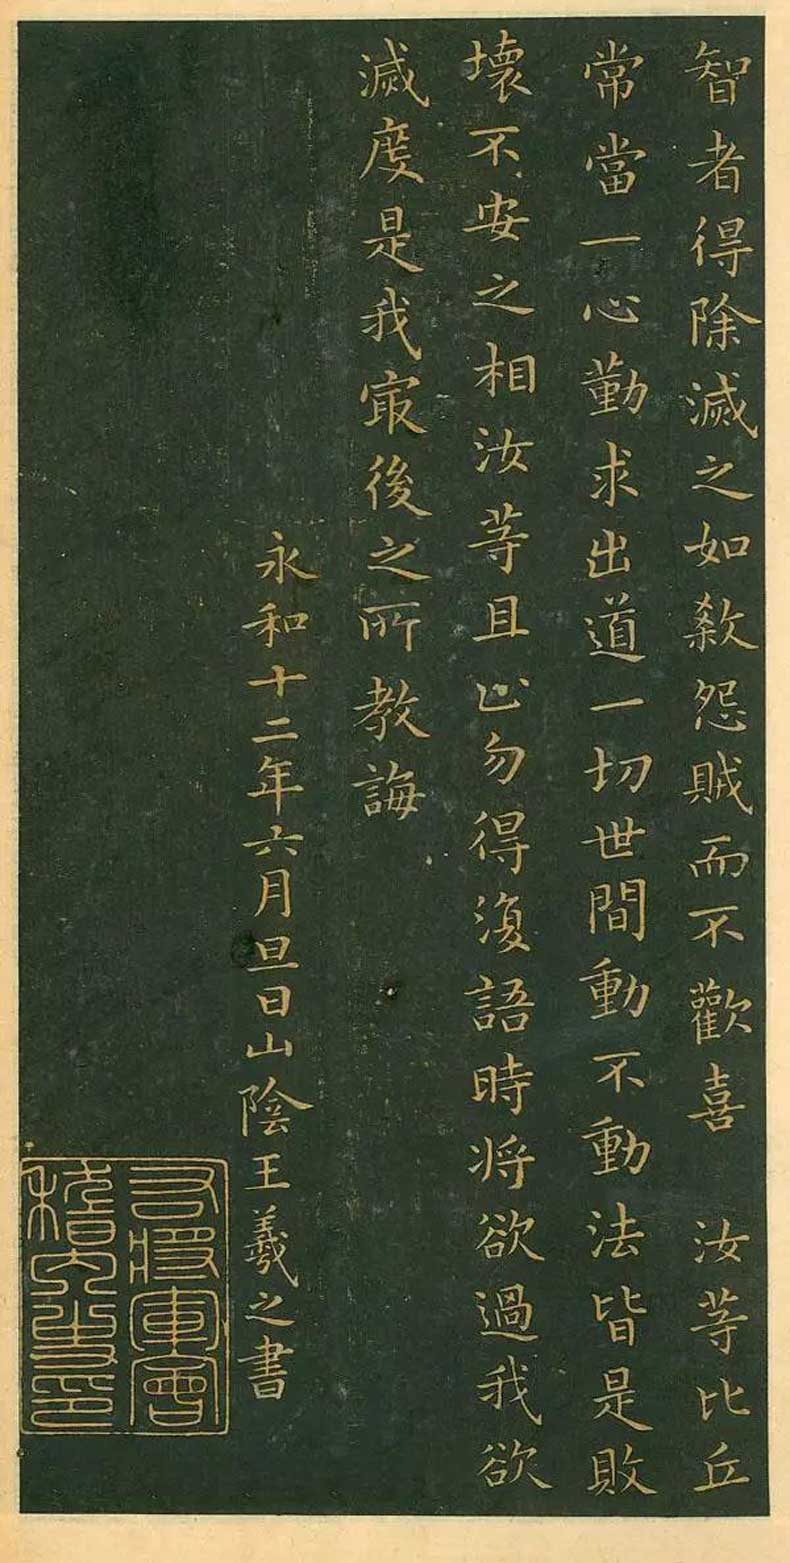 智者得除滅之如殺怨賊而不歡喜　汝等比丘
常當一心勤求出道一切世間動不動法皆是敗
壞不安之相汝等且止勿得復語時将欲過我欲
滅度是我㝡後之所教誨
永和十二年六月旦日山陰王羲之書
右将軍會
稽內史印